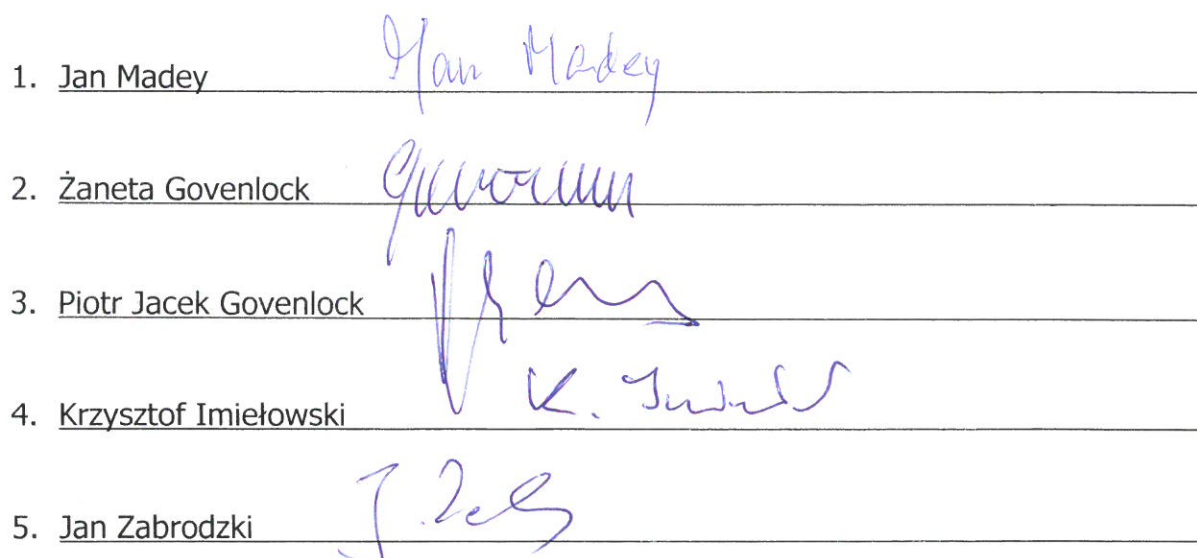 1. Jan Madey Jan Madey
2. Żaneta Govenlock
3. Piotr Jacek Govenlock
4. Krzysztof Imiełowski K.
5. Jan Zabrodzki